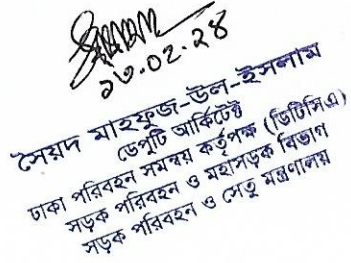 ১৩.০২.২৪
সৈয়দ মাহফুজ-উল-ইসলাম
ডেপুটি আর্কিটেক্ট
ঢাকা পরিবহন সমন্বয় কর্তৃপক্ষ (ডিটিসিএ)
সড়ক পরিবহন ও মহাসড়ক বিভাগ
সড়ক পরিবহন ও সেতু মন্ত্রণালয়